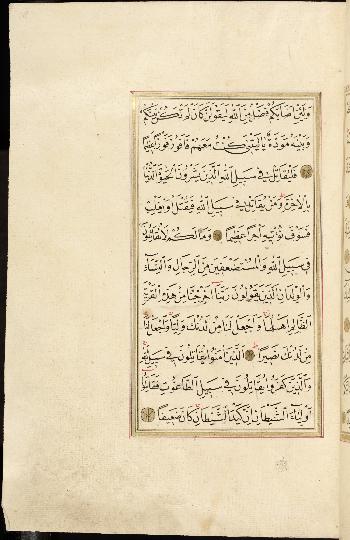 وَلَئِنْ اَصَابَكُمْ فَضْلٌ مِنَ اللّٰهِ لَيَقُولَنَّ كَاَنْ لَمْ تَكُنْ بَيْنَكُمْ
وَبَيْنَهُ مَوَدَّةٌ يَالَيْتَنِي كُنْتُ مَعَهُمْ فَاَفُوزَ فَوْزًا عَظِيمًا
فَلْيُقَاتِلْ فِي سَبِيلِ اللّٰهِ الَّذِينَ يَشْرُونَ الْحَيٰوةَ الدُّنْيَا
بِالْاٰخِرَةِ وَمَنْ يُقَاتِلْ فِي سَبِيلِ اللّٰهِ فَيُقْتَلْ اَوْ يَغْلِبْ
فَسَوْفَ نُؤْتِيهِ اَجْرًا عَظِيمًا وَمَا لَكُمْ لَا تُقَاتِلُونَ
فِي سَبِيلِ اللّٰهِ وَالْمُسْتَضْعَفِينَ مِنَ الرِّجَالِ وَالنِّسَاءِ
وَالْوِلْدَانِ الَّذِينَ يَقُولُونَ رَبَّنَا اَخْرِجْنَا مِنْ هٰذِهِ الْقَرْيَةِ
الظَّالِمِ اَهْلُهَا وَاجْعَلْ لَنَا مِنْ لَدُنْكَ وَلِيًّا وَاجْعَلْ لَنَا
مِنْ لَدُنْكَ نَصِيرًا الَّذِينَ اٰمَنُوا يُقَاتِلُونَ فِي سَبِيلِ اللّٰهِ
وَالَّذِينَ كَفَرُوا يُقَاتِلُونَ فِي سَبِيلِ الطَّاغُوتِ فَقَاتِلُوا
اَوْلِيَاءَ الشَّيْطَانِ اِنَّ كَيْدَ الشَّيْطَانِ كَانَ ضَعِيفًا